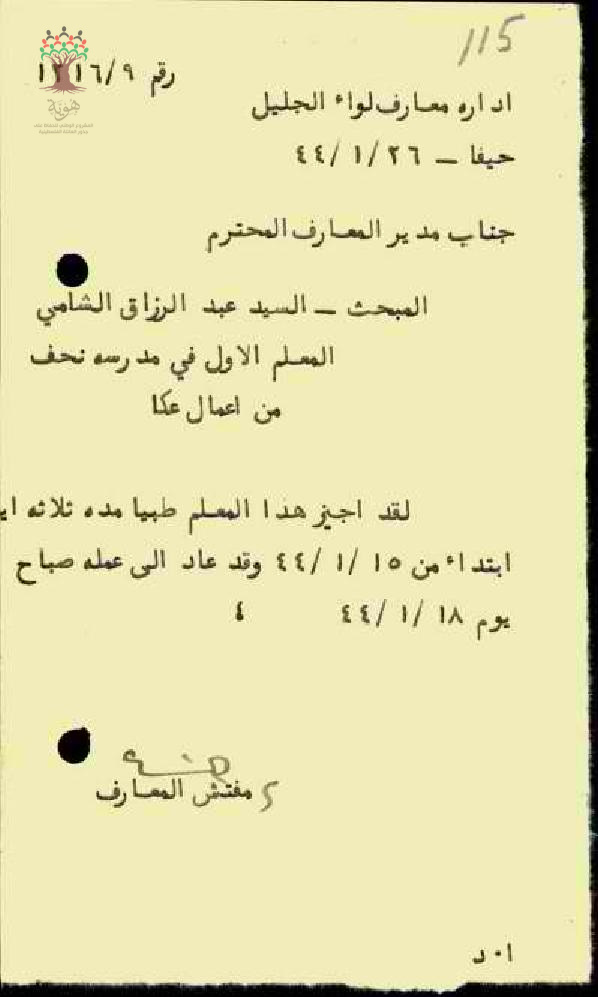 115
رقم ١٢١٦/٩
هوية
اداره معارف لواء الجليل
حيفا – ٢٦ /١ /٤٤
جناب مدير المعارف المحترم
المبحث – السيد عبد الرزاق الشامي
المعلم الاول في مدرسه نحف
من اعمال عكا
لقد اجيز هذا المعلم طبيا مده ثلاثه
ابتداء من ١٥ /١ /٤٤ وقد عاد الى عمله صباح
يوم ١٨ /١ /٤٤ ٤
مفتش المعارف
ا٠د